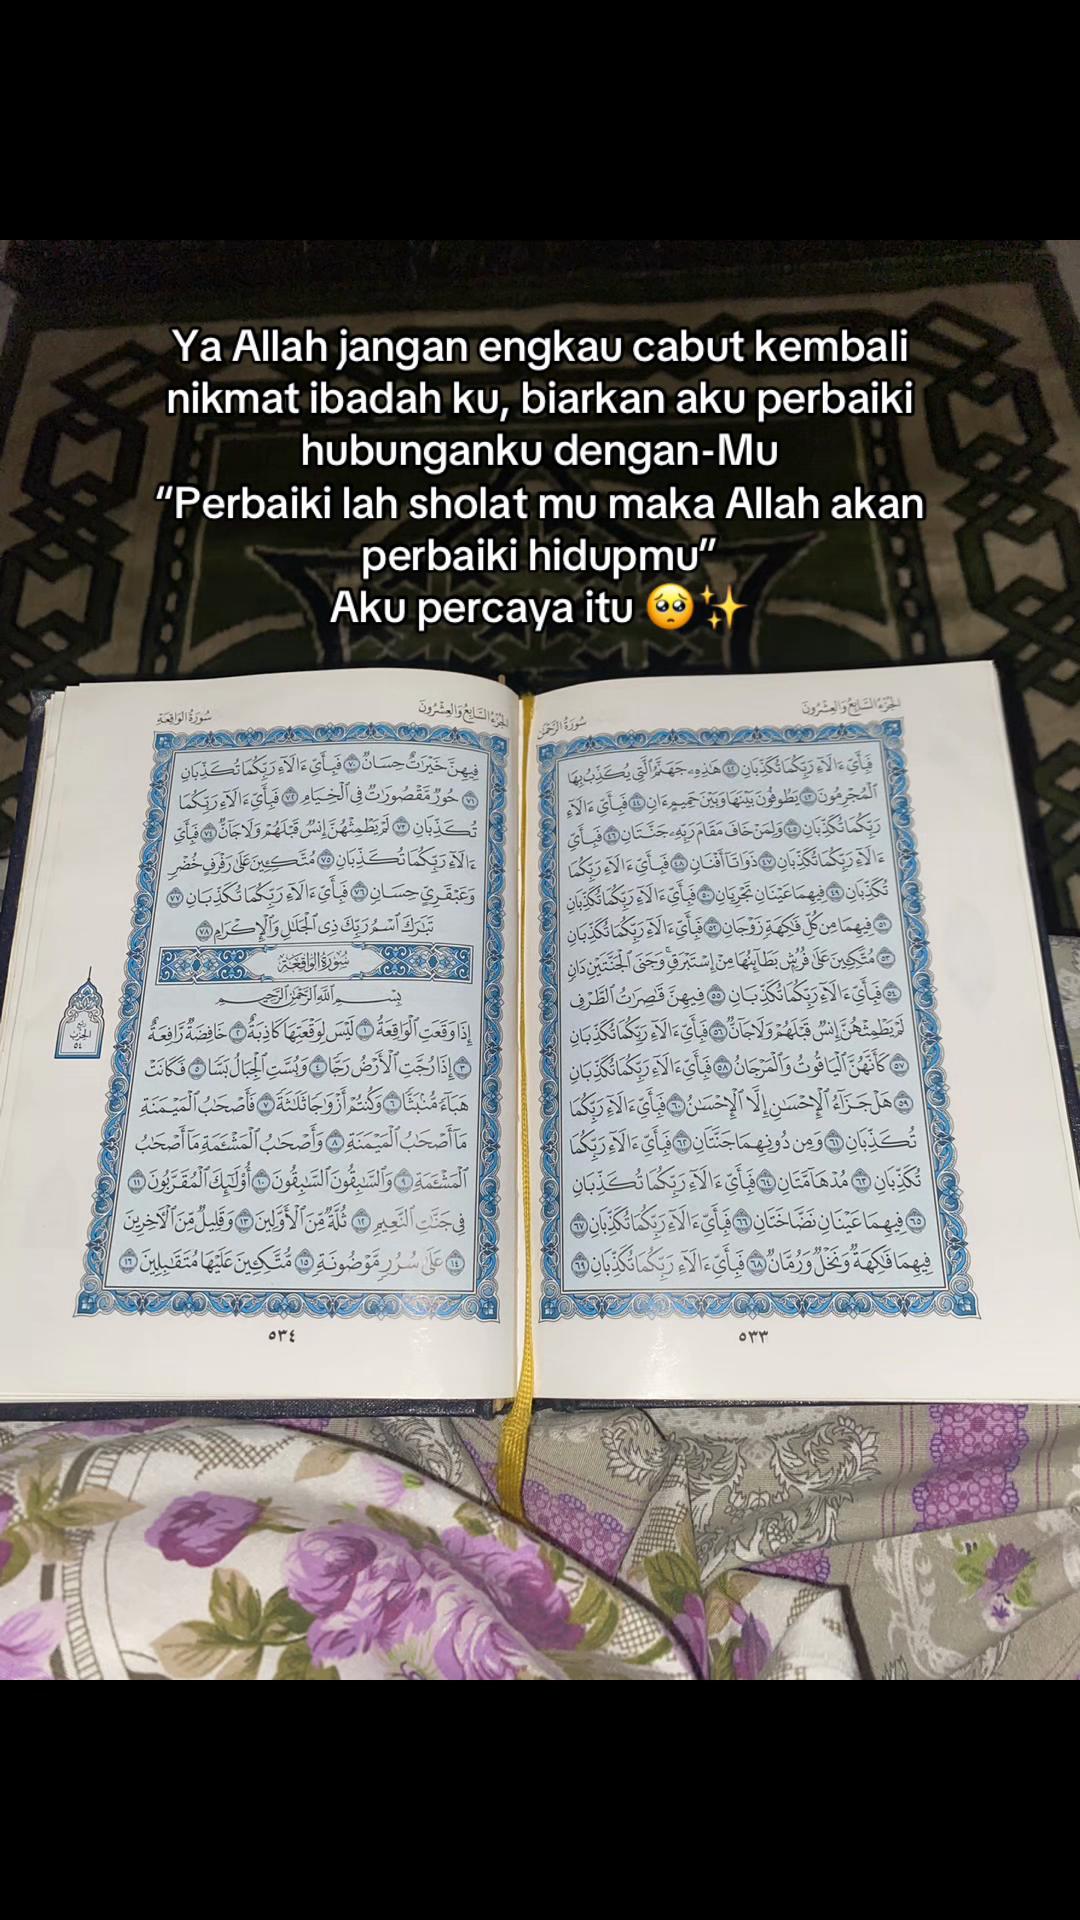 Ya Allah jangan engkau cabut kembali
nikmat ibadah ku, biarkan aku perbaiki
hubunganku dengan-Mu
“Perbaiki lah sholat mu maka Allah akan
perbaiki hidupmu”
Aku percaya itu 🥺✨
الجزء السابع والعشرون
سورة الرحمن
فَبِأَيِّ ءَالَآءِ رَبِّكُمَا تُكَذِّبَانِ ٤٢ هَٰذِهِۦ جَهَنَّمُ ٱلَّتِي يُكَذِّبُ بِهَا
ٱلْمُجْرِمُونَ ٤٣ يَطُوفُونَ بَيْنَهَا وَبَيْنَ حَمِيمٍ ءَانٍ ٤٤ فَبِأَيِّ ءَالَآءِ
رَبِّكُمَا تُكَذِّبَانِ ٤٥ وَلِمَنْ خَافَ مَقَامَ رَبِّهِۦ جَنَّتَانِ ٤٦ فَبِأَيِّ
ءَالَآءِ رَبِّكُمَا تُكَذِّبَانِ ٤٧ ذَوَاتَآ أَفْنَانٍ ٤٨ فَبِأَيِّ ءَالَآءِ رَبِّكُمَا
تُكَذِّبَانِ ٤٩ فِيهِمَا عَيْنَانِ تَجْرِيَانِ ٥٠ فَبِأَيِّ ءَالَآءِ رَبِّكُمَا تُكَذِّبَانِ
٥١ فِيهِمَا مِن كُلِّ فَٰكِهَةٍ زَوْجَانِ ٥٢ فَبِأَيِّ ءَالَآءِ رَبِّكُمَا تُكَذِّبَانِ
٥٣ مُتَّكِـِٔينَ عَلَىٰ فُرُشٍۭ بَطَآئِنُهَا مِنْ إِسْتَبْرَقٍ ۚ وَجَنَى ٱلْجَنَّتَيْنِ دَانٍ
٥٤ فَبِأَيِّ ءَالَآءِ رَبِّكُمَا تُكَذِّبَانِ ٥٥ فِيهِنَّ قَٰصِرَٰتُ ٱلطَّرْفِ
لَمْ يَطْمِثْهُنَّ إِنسٌ قَبْلَهُمْ وَلَا جَآنٌّ ٥٦ فَبِأَيِّ ءَالَآءِ رَبِّكُمَا تُكَذِّبَانِ
٥٧ كَأَنَّهُنَّ ٱلْيَاقُوتُ وَٱلْمَرْجَانُ ٥٨ فَبِأَيِّ ءَالَآءِ رَبِّكُمَا تُكَذِّبَانِ
٥٩ هَلْ جَزَآءُ ٱلْإِحْسَٰنِ إِلَّا ٱلْإِحْسَٰنُ ٦٠ فَبِأَيِّ ءَالَآءِ رَبِّكُمَا
تُكَذِّبَانِ ٦١ وَمِن دُونِهِمَا جَنَّتَانِ ٦٢ فَبِأَيِّ ءَالَآءِ رَبِّكُمَا
تُكَذِّبَانِ ٦٣ مُدْهَآمَّتَانِ ٦٤ فَبِأَيِّ ءَالَآءِ رَبِّكُمَا تُكَذِّبَانِ
٦٥ فِيهِمَا عَيْنَانِ نَضَّاخَتَانِ ٦٦ فَبِأَيِّ ءَالَآءِ رَبِّكُمَا تُكَذِّبَانِ ٦٧
فِيهِمَا فَٰكِهَةٌ وَنَخْلٌ وَرُمَّانٌ ٦٨ فَبِأَيِّ ءَالَآءِ رَبِّكُمَا تُكَذِّبَانِ ٦٩
٥٣٣
الجزء السابع والعشرون
سورة الواقعة
فِيهِنَّ خَيْرَٰتٌ حِسَانٌ ٧٠ فَبِأَيِّ ءَالَآءِ رَبِّكُمَا تُكَذِّبَانِ
٧١ حُورٌ مَّقْصُورَٰتٌ فِي ٱلْخِيَامِ ٧٢ فَبِأَيِّ ءَالَآءِ رَبِّكُمَا
تُكَذِّبَانِ ٧٣ لَمْ يَطْمِثْهُنَّ إِنسٌ قَبْلَهُمْ وَلَا جَآنٌّ ٧٤ فَبِأَيِّ
ءَالَآءِ رَبِّكُمَا تُكَذِّبَانِ ٧٥ مُتَّكِـِٔينَ عَلَىٰ رَفْرَفٍ خُضْرٍ
وَعَبْقَرِيٍّ حِسَانٍ ٧٦ فَبِأَيِّ ءَالَآءِ رَبِّكُمَا تُكَذِّبَانِ ٧٧
تَبَٰرَكَ ٱسْمُ رَبِّكَ ذِي ٱلْجَلَٰلِ وَٱلْإِكْرَامِ ٧٨
سورة الواقعة
بِسْمِ ٱللَّهِ ٱلرَّحْمَٰنِ ٱلرَّحِيمِ
إِذَا وَقَعَتِ ٱلْوَاقِعَةُ ١ لَيْسَ لِوَقْعَتِهَا كَاذِبَةٌ ٢ خَافِضَةٌ رَّافِعَةٌ
٣ إِذَا رُجَّتِ ٱلْأَرْضُ رَجًّا ٤ وَبُسَّتِ ٱلْجِبَالُ بَسًّا ٥ فَكَانَتْ
هَبَآءً مُّنۢبَثًّا ٦ وَكُنتُمْ أَزْوَٰجًا ثَلَٰثَةً ٧ فَأَصْحَٰبُ ٱلْمَيْمَنَةِ
مَآ أَصْحَٰبُ ٱلْمَيْمَنَةِ ٨ وَأَصْحَٰبُ ٱلْمَشْـَٔمَةِ مَآ أَصْحَٰبُ
ٱلْمَشْـَٔمَةِ ٩ وَٱلسَّٰبِقُونَ ٱلسَّٰبِقُونَ ١٠ أُو۟لَٰٓئِكَ ٱلْمُقَرَّبُونَ ١١
فِي جَنَّٰتِ ٱلنَّعِيمِ ١٢ ثُلَّةٌ مِّنَ ٱلْأَوَّلِينَ ١٣ وَقَلِيلٌ مِّنَ ٱلْءَاخِرِينَ
١٤ عَلَىٰ سُرُرٍ مَّوْضُونَةٍ ١٥ مُّتَّكِـِٔينَ عَلَيْهَا مُتَقَٰبِلِينَ ١٦
ربع
الحزب
٥٤
٥٣٤